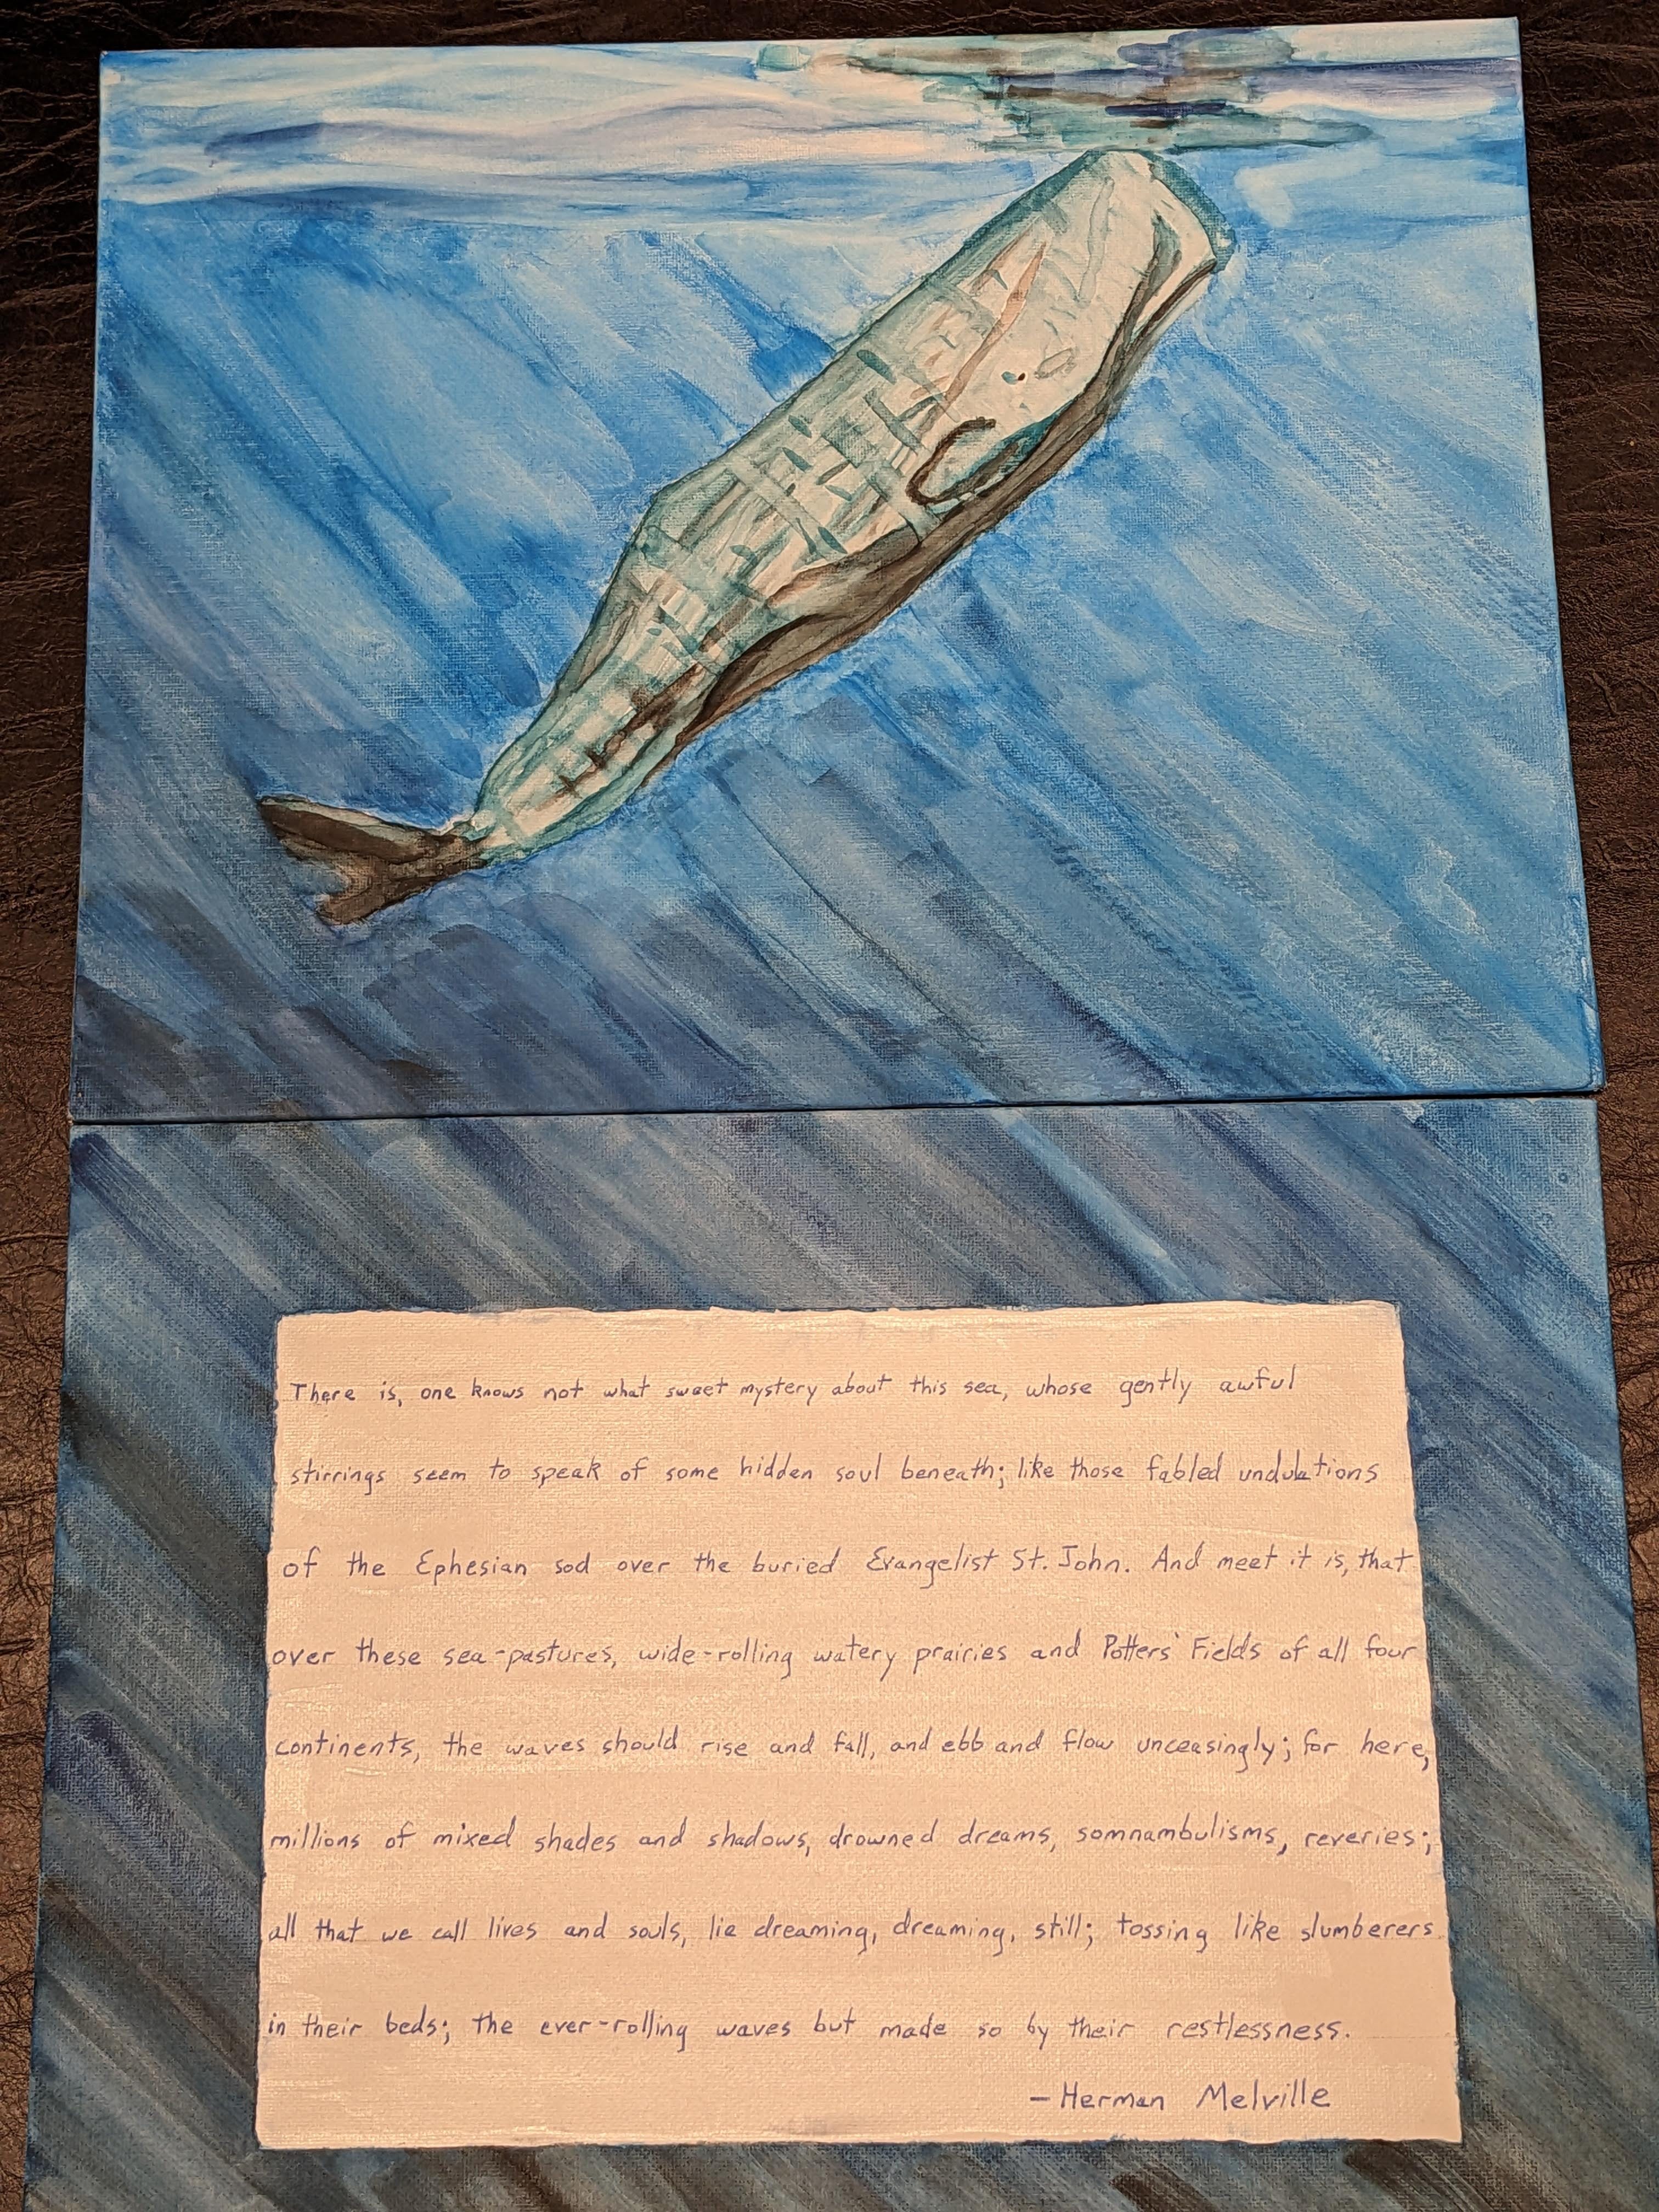 There is, one knows not what sweet mystery about this sea, whose gently awful
stirrings seem to speak of some hidden soul beneath; like those fabled undulations
of the Ephesian sod over the buried Evangelist St. John. And meet it is, that
over these sea-pastures, wide-rolling watery prairies and Potters' Fields of all four
continents, the waves should rise and fall, and ebb and flow unceasingly; for here,
millions of mixed shades and shadows, drowned dreams, somnambulisms, reveries;
all that we call lives and souls, lie dreaming, dreaming, still; tossing like slumberers
in their beds; the ever-rolling waves but made so by their restlessness.
- Herman Melville